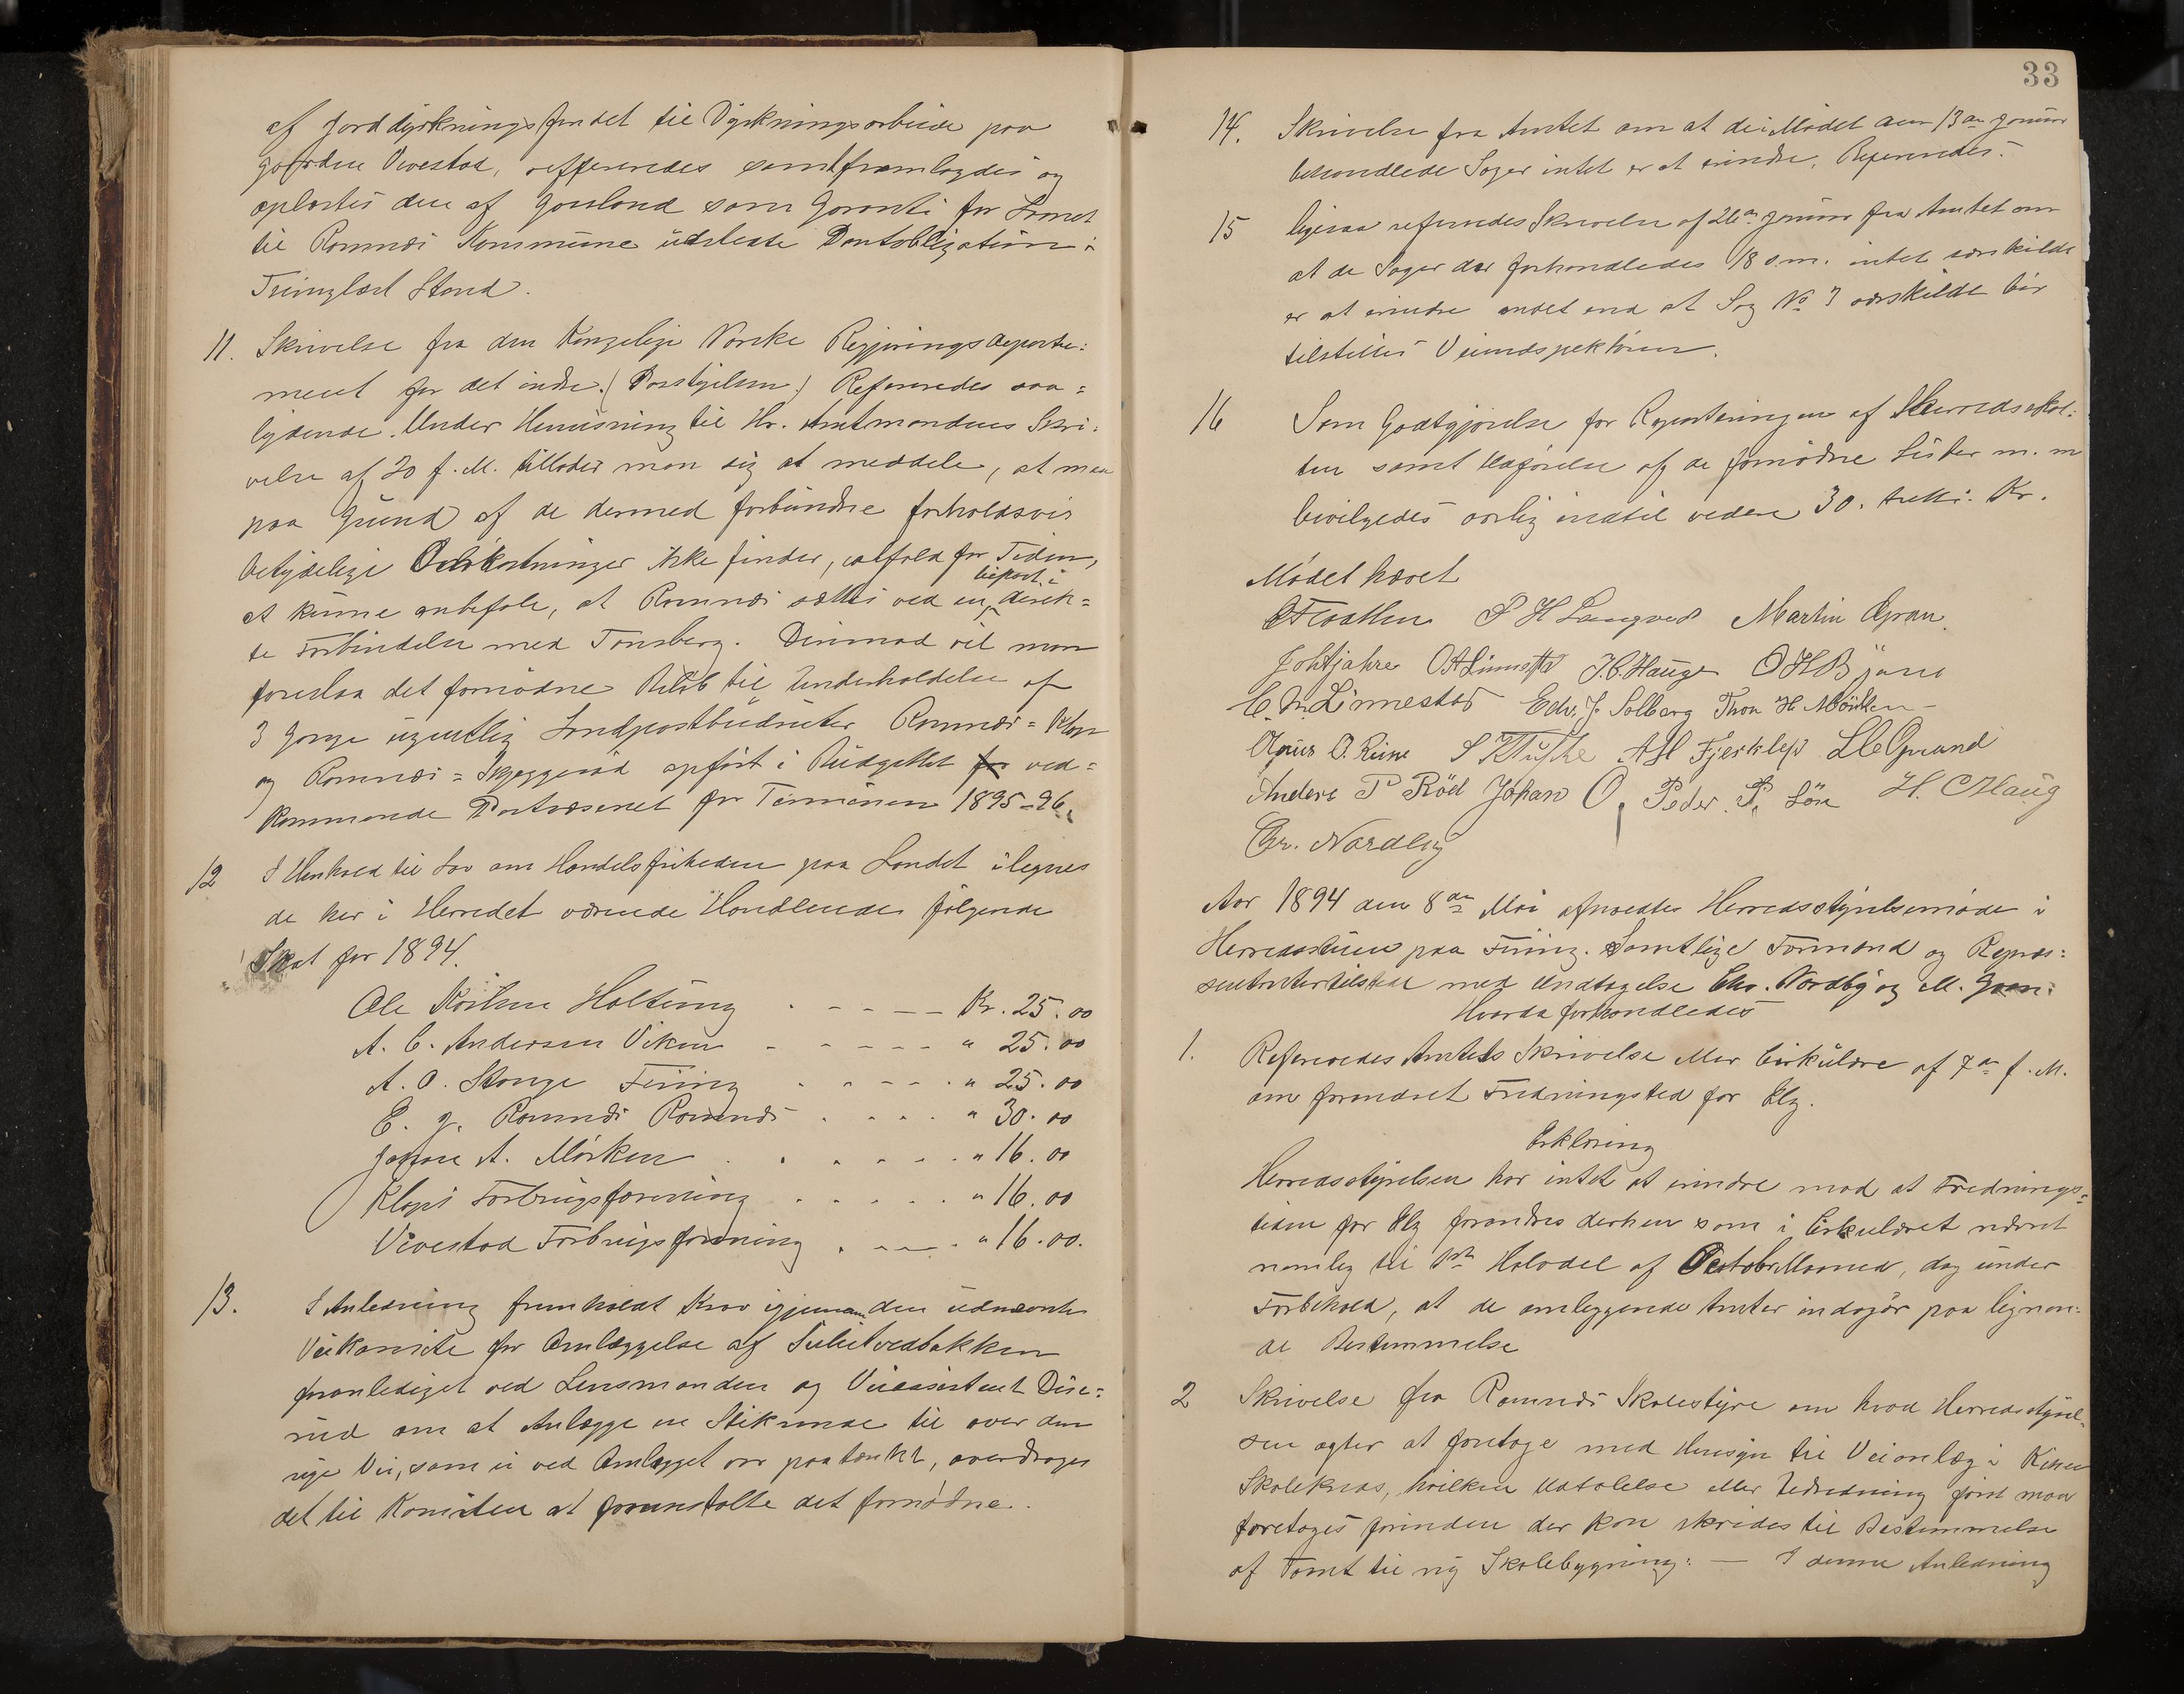 af Jorddyrkningsfondet til Dyrkningsarbeide paa
Gaarden Vivestad, reffereredes samt fremlagdes og
oplæstes den af Gaasland som Garanti for Laanet
til Ramnæs Kommune udstedte Pantobligation i
Tinglæst Stand.
11. Skrivelse fra den Kongelige Norske Regjerings Departe=
ment for det indre. (Poststyrelsen) Refereredes saa=
lydende. Under Henvisning til Hr. Amtmandens Skri=
velse af 20 f. M. tillader man sig at meddele, at man
paa Grund af de dermed forbundne forholdsvis
betydelige Omkostninger ikke finder, ialfald for Tiden,
at kunne anbefale, at Ramnæs sættes ved en bipost i direk=
te Forbindelse med Tønsberg. Derimod vil man
foreslaa det fornødne Beløb til Underholdelse af
3 Gange ugentlig Landpostbudruter Ramnæs = Klop
og Ramnæs = Skjeggerød opført i Budgettet for ved=
kommende Postvæsenet for Terminen 1895-96.
12 I Henhold til Lov om Handelsfriheden paa Landet ilegnes
de her i Herredet værende Handlende følgende
Skat for 1894.
Ole Holtung - - - - Kr. 25.00
A. C. Andersen Viken - - - - " 25.00
A. O. Stange Fuing - - - - " 25.00
E. G. Ramnæs Ramnæs . . . . " 30.00
Johan A. Mørken . . . . " 16.00
Klops Forbrugsforening . . . . " 16.00
Vivestad Forbrugsforening . - - . " 16.00.
13. I Anledning fremholdt Krav igjennem den udnævnte
Veikomite for Omlæggelse af
foranlediget ved Lensmanden og Veiassistent Dise=
rud om at Anlægge en Stikrende til over den
nye Vei, som ei ved Anlægget var paatænkt, overdrages
det til Komiteen at foranstalte det fornødne.
33
14. Skrivelse fra Amtet om at de i Mødet den 13de Januar
behandlede Sager intet er at erindre. Refereredes.
15 ligesaa refereredes Skrivelse af 26de Januar fra Amtet om
at de Sager der forhandledes 18 s.m. intet særskilde
er at erindre andet end at Sag No 7 særskildt bør
tilstilles Veiinspektøren.
16 Som Godtgjørelse for Reparteringen af Herredsskat=
ten samt Udførelse af de fornødne Lister m. m
bevilgedes aarlig indtil videre 30. tretti. Kr.
Mødet hævet
P H Langved Martin Gran
O A Linnestad H. C. Hauge O H Bjune
C. M. Linnestad Edv. J. Solberg Thor H Mörken
O. Rime A H Fjerklep
Anders P Röd Johan O, Peder P. Lön H. C Haug
Chr. Nordby
Aar 1894 den 8de Mai afholdtes Herredsstyrelsemøde i
Herredsstuen paa Fuing. Samtlige Formænd og Repræ=
sentanter tilstede med Undtagelse Chr. Nordby og M. Gran.
Hvorda forhandledes
1. Refereredes Amtets Skrivelse eller Cirkulære af 7de f. M.
om forandret Fredningstid for Elg.
Erklæring
Herredsstyrelsen har intet at erindre mod at Frednings=
tiden for Elg forandres derhen som i Cirkulæret nævnt
nemlig til 1ste Halvdel af October Maaned, dog under
Forbehold, at de omliggende Amter indgaar paa lignen=
de Bestemmelse
2 Skrivelse fra Ramnæs Skolestyre om hvad Herredsstyrel=
sen agter at foretage med Hensyn til Veianlæg i
Skolekreds, hvilken Udtalelse eller Udredning først maa
foretages forinden der kan skrides til Bestemmelse
af Tomt til ny Skolebygning: — I denne Anledning